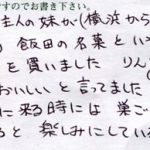 すのでお書き下さい。
主人の妹が(横浜から
) 飯田の名菓とい
を買いました りん
おいしいと言ってました
に来る時には 巣ご
ると 楽しみにしている